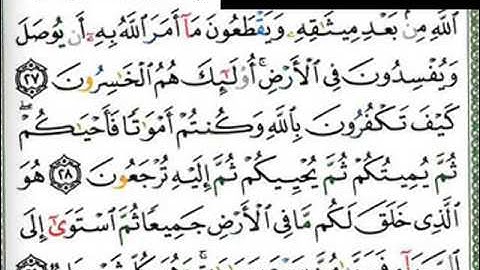 ٱللَّهِ مِنۢ بَعْدِ مِيثَٰقِهِۦ وَيَقْطَعُونَ مَآ أَمَرَ ٱللَّهُ بِهِۦٓ أَن يُوصَلَ
وَيُفْسِدُونَ فِى ٱلْأَرْضِ ۚ أُو۟لَٰٓئِكَ هُمُ ٱلْخَٰسِرُونَ ٢٧
كَيْفَ تَكْفُرُونَ بِٱللَّهِ وَكُنتُمْ أَمْوَٰتًا فَأَحْيَٰكُمْ ۖ
ثُمَّ يُمِيتُكُمْ ثُمَّ يُحْيِيكُمْ ثُمَّ إِلَيْهِ تُرْجَعُونَ ٢٨ هُوَ
ٱلَّذِى خَلَقَ لَكُم مَّا فِى ٱلْأَرْضِ جَمِيعًا ثُمَّ ٱسْتَوَىٰٓ إِلَى